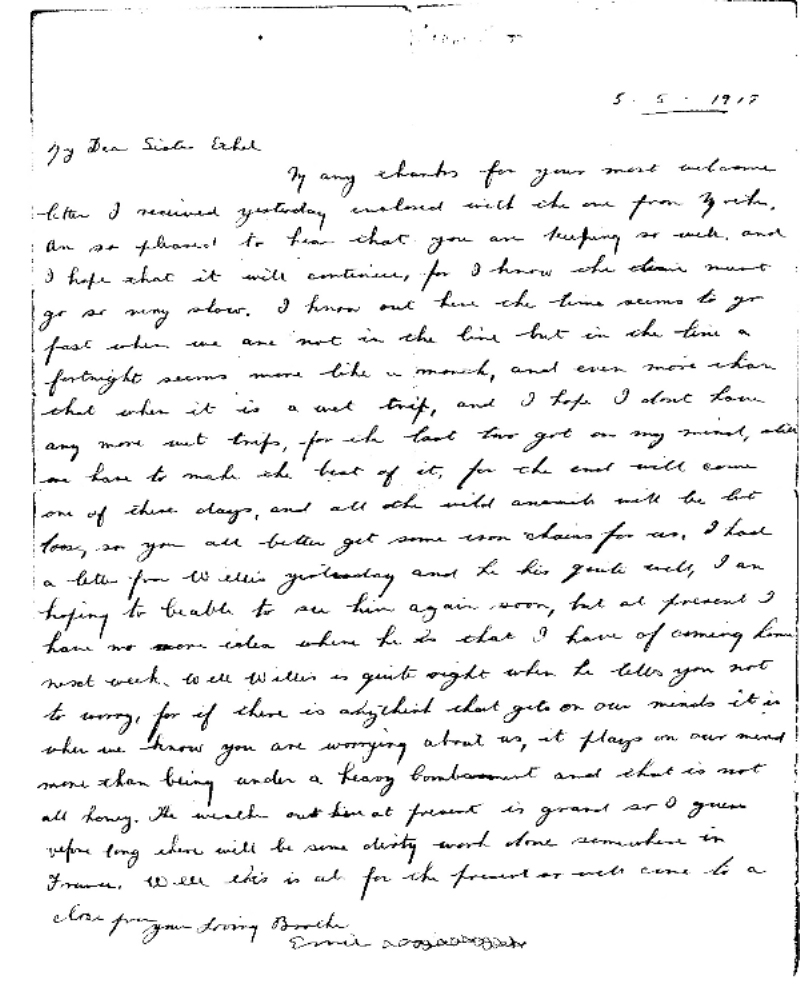 5. 5. 1917
My Dear Sister Ethel
Many thanks for your most welcome
letter I received yesterday enclosed with the one from Mother.
Am so pleased to hear that you are keeping so well. and
I hope that it will continue, for I know the time must
go so very slow. I know out here the time seems to go
fast when we are not in the line but in the line a
fortnight seems more like a month, and even more than
that when it is a wet trip, and I hope I dont have
any more wet trips, for the last two got on my mind, still
we have to make the best of it, for the end will come
one of these days, and all the wild animals will be let
loose, so you all better get some iron chains for us. I had
a letter from Willis yesterday and he his quite well, I am
hoping to beable to see him again soon, but at present I
have no more idea where he is that I have of coming home
next week. Well Willis is quite right when he tells you not
to worry, for if there is anythink that gets on our minds it is
when we know you are worrying about us, it plays on our mind
more than being under a heavy bombarment and that is not
all honey. The weather out here at present is grand so I guess
before long there will be some dirty work done somewhere in
France. Well this is all for the present so will come to a
close from your Loving Brother
Ernie